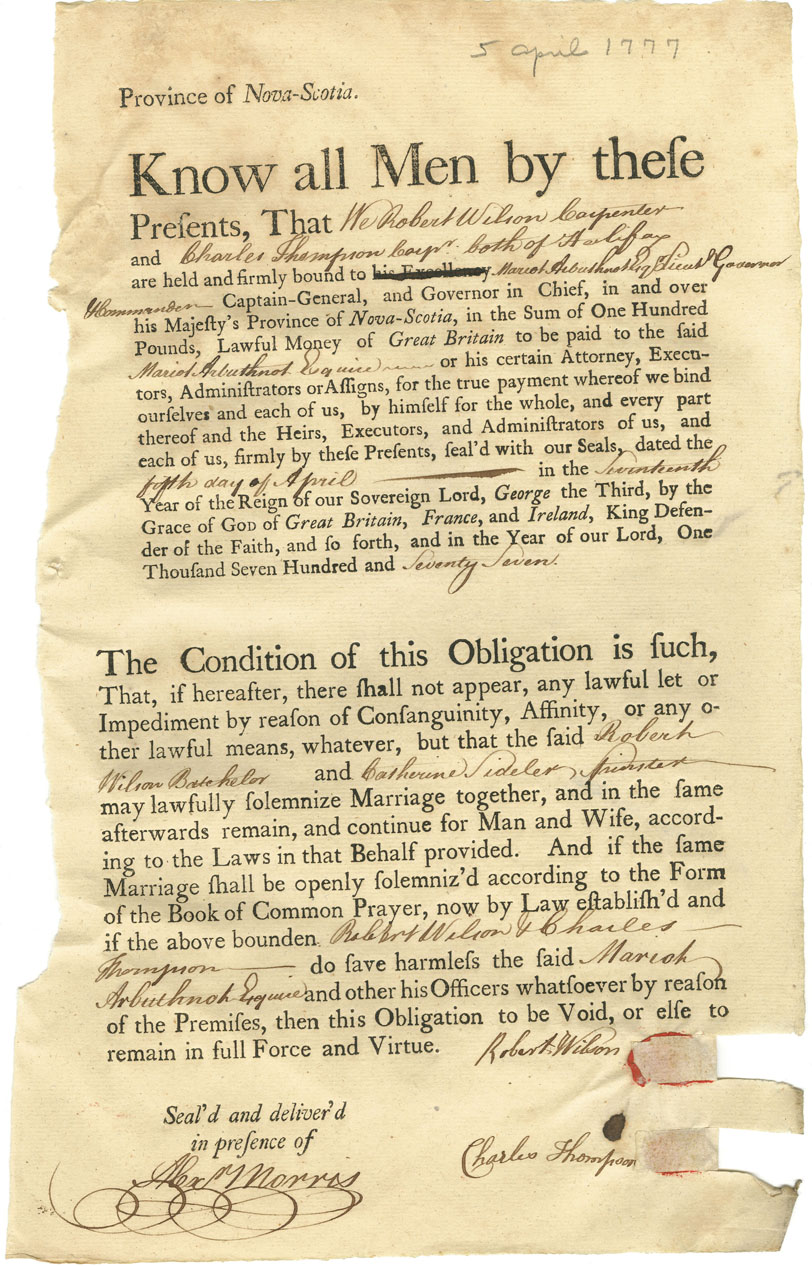 5 april 1777
Province of Nova-Scotia.
Know all Men by theſe
Preſents, That We Robert Wilson Carpenter
and Charles Thompson Carpr. both of Halifax
are held and firmly bound to his Excellency Mariot Arbuthnot Esqr Lieut Governor
& Commander Captain-General, and Governor in Chief, in and over
his Majeſty's Province of Nova-Scotia, in the Sum of One Hundred
Pounds, Lawful Money of Great Britain to be paid to the ſaid
Mariot Arbuthnot Esquire or his certain Attorney, Execu-
tors, Adminiſtrators or Aſſigns, for the true payment whereof we bind
ourſelves and each of us, by himſelf for the whole, and every part
thereof and the Heirs, Executors, and Adminiſtrators of us, and
each of us, firmly by theſe Preſents, ſeal'd with our Seals, dated the
fifth day of April in the Seventeenth
Year of the Reign of our Sovereign Lord, George the Third, by the
Grace of God of Great Britain, France, and Ireland, King Defen-
der of the Faith, and ſo forth, and in the Year of our Lord, One
Thouſand Seven Hundred and Seventy Seven.
The Condition of this Obligation is ſuch,
That, if hereafter, there ſhall not appear, any lawful let or
Impediment by reaſon of Conſanguinity, Affinity, or any o-
ther lawful means, whatever, but that the ſaid Robert
Wilson Batchelor and Catherine Sideler Spinster
may lawfully ſolemnize Marriage together, and in the ſame
afterwards remain, and continue for Man and Wife, accord-
ing to the Laws in that Behalf provided. And if the ſame
Marriage ſhall be openly ſolemniz'd according to the Form
of the Book of Common Prayer, now by Law eſtabliſh'd and
if the above bounden Robert Wilson & Charles
Thompson do ſave harmleſs the ſaid Mariot
Arbuthnot Esquire and other his Officers whatſoever by reaſon
of the Premiſes, then this Obligation to be Void, or elſe to
remain in full Force and Virtue. Robert Wilson
Seal'd and deliver'd
in preſence of
Charles Thompson
Alexr Morris